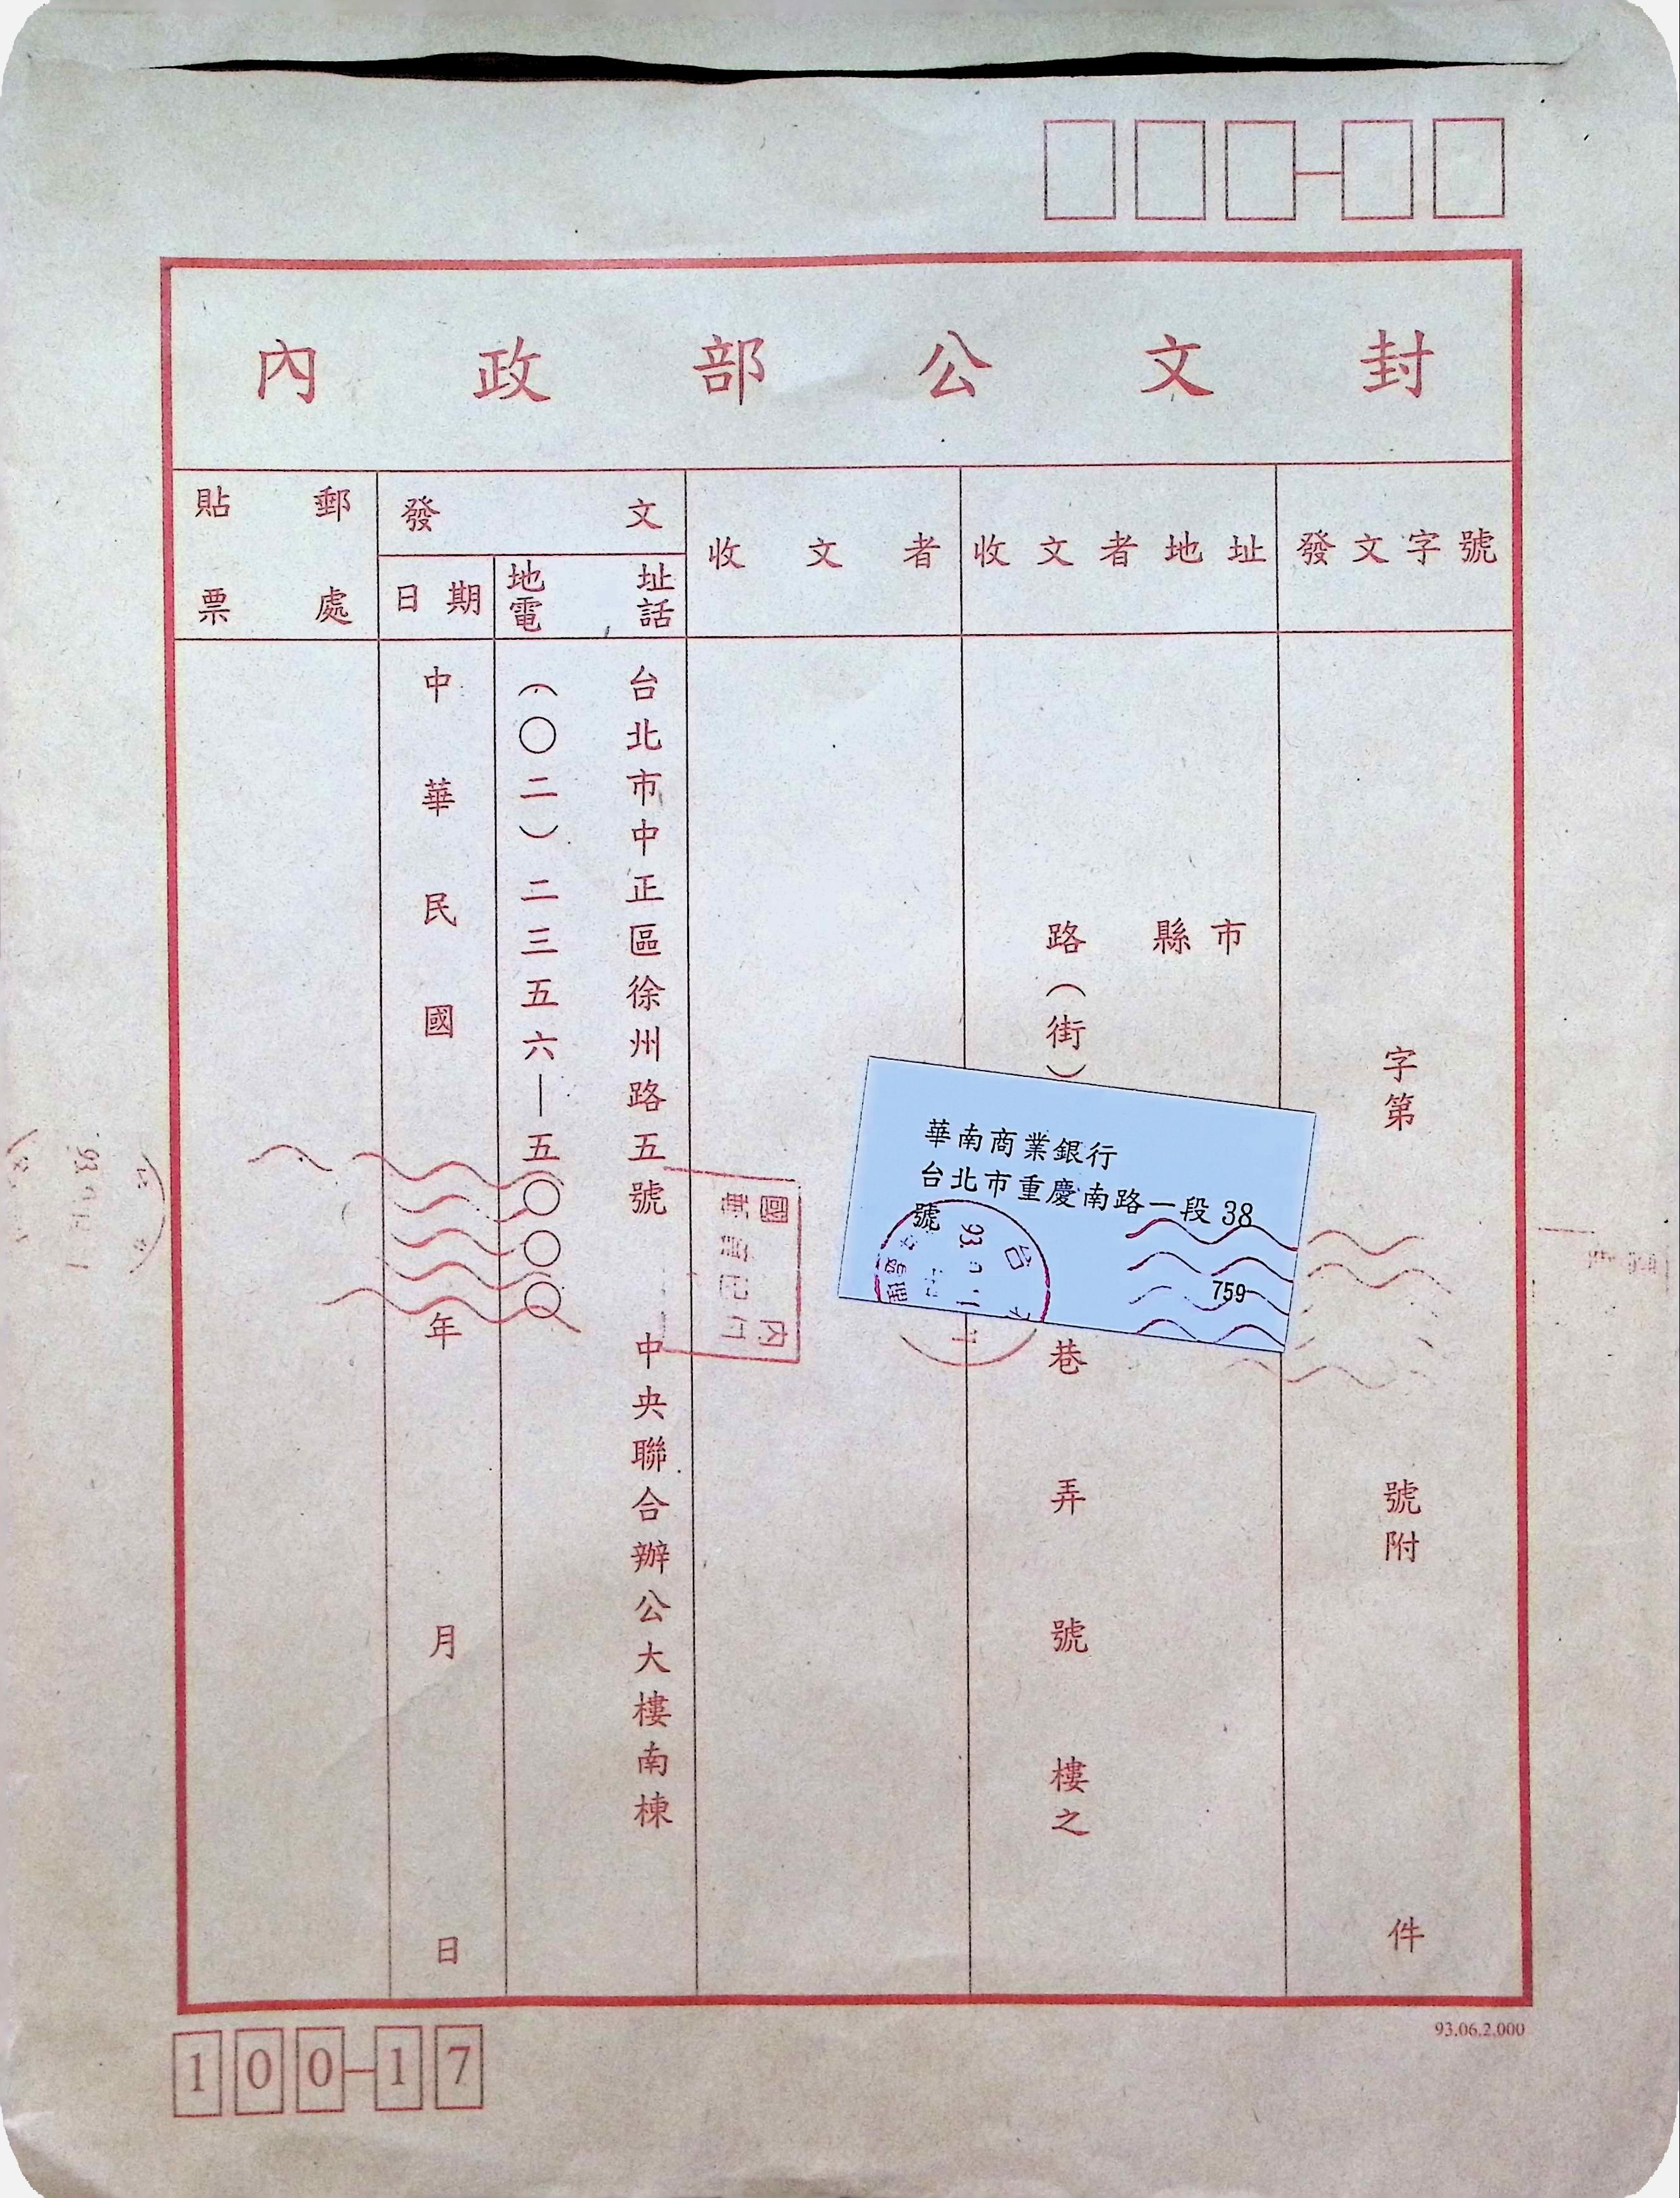 內政部公文封
貼郵票處
發文
日期
地址
電話
收文者
收文者地址
發文字號
中華民國 年 月 日
(〇二)二三五六—五〇〇〇
台北市中正區徐州路五號 中央聯合辦公大樓南棟
縣市
路(街)
巷 弄 號 樓之
字第 號附 件
華南商業銀行
台北市重慶南路一段 38
號
759
93
台
國
內
93
93.06.2.000
100-17